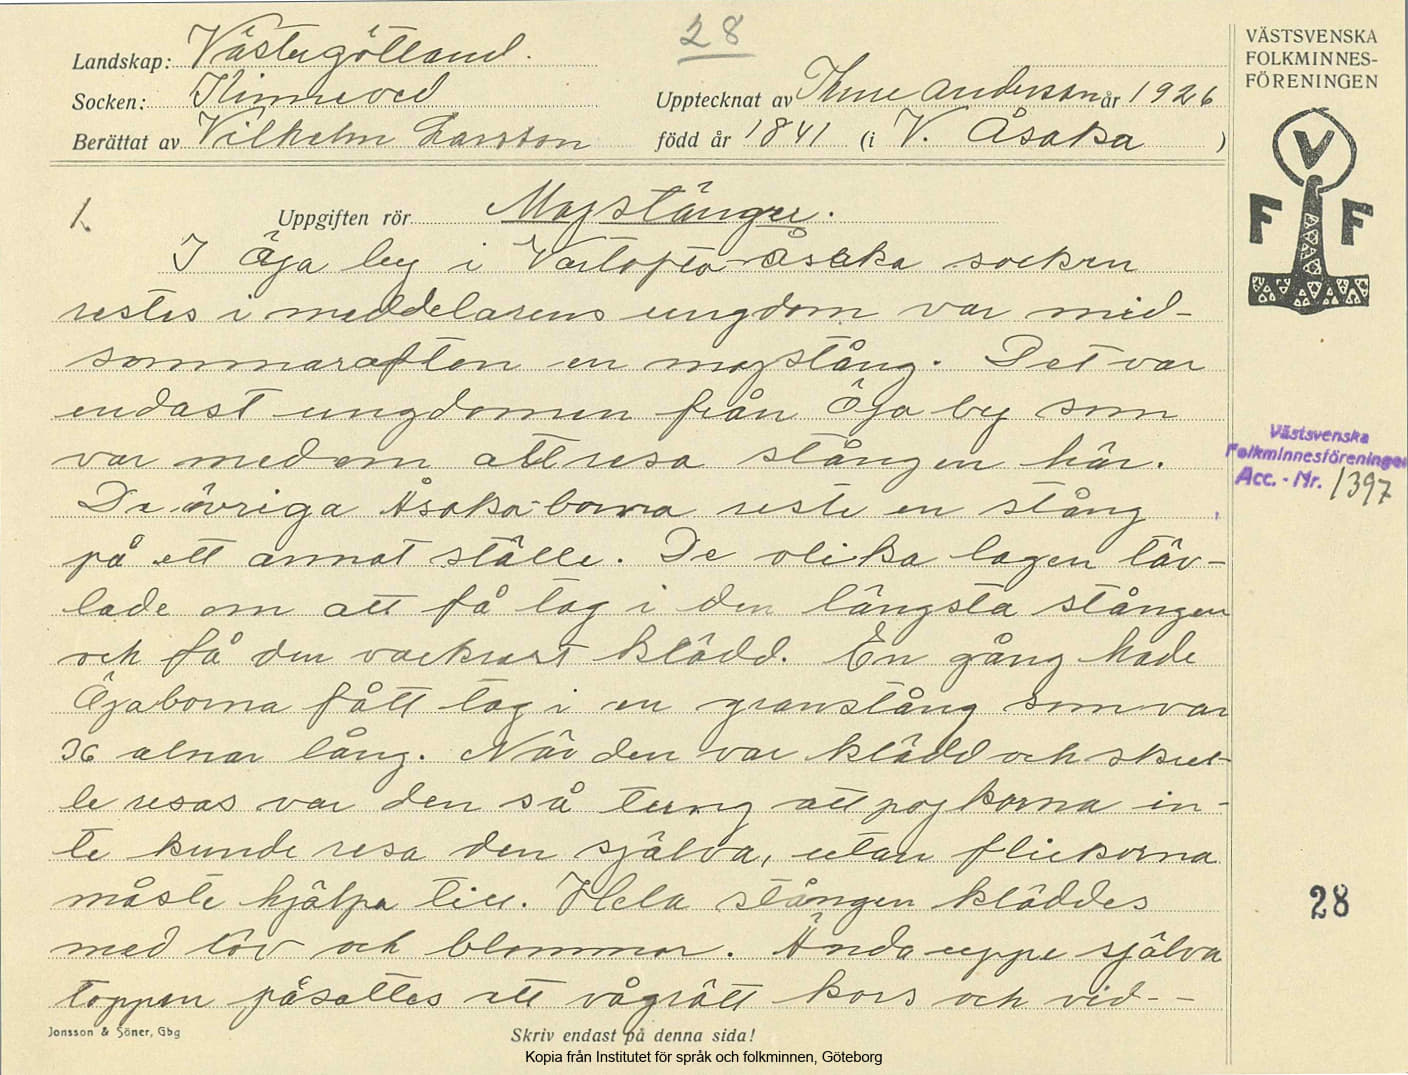 28
Landskap: Västergötland.
Socken: Kinneved
Upptecknat av Thure Andersson år 1926
Berättat av Vilhelm Larsson
född år 1841 (i V. Åsaka )
1.
Uppgiften rör Majstänger.
I Öja by i Vartofta-Åsaka socken
restes i meddelarens ungdom var mid-
sommarafton en majstång. Det var
endast ungdomen från Öja by som
var med om att resa stången här.
De övriga Åsaka-borna reste en stång
på ett annat ställe. De olika lagen täv-
lade om att få tag i den längsta stången
och få den vackrast klädd. En gång hade
Öjaborna fått tag i en granstång som var
36 alnar lång. När den var klädd och skul-
le resas var den så tung att pojkarna in-
te kunde resa den själva, utan flickorna
måste hjälpa till. Hela stången kläddes
med löv och blommor. Ända uppe själva
toppen påsattes ett vågrätt kors och vid--
Jonsson & Söner, Gbg
Skriv endast på denna sida!
Kopia från Institutet för språk och folkminnen, Göteborg
VÄSTSVENSKA
FOLKMINNES-
FÖRENINGEN
V
F F
Västsvenska
Folkminnesföreningen
Acc. - Nr. 1397
28